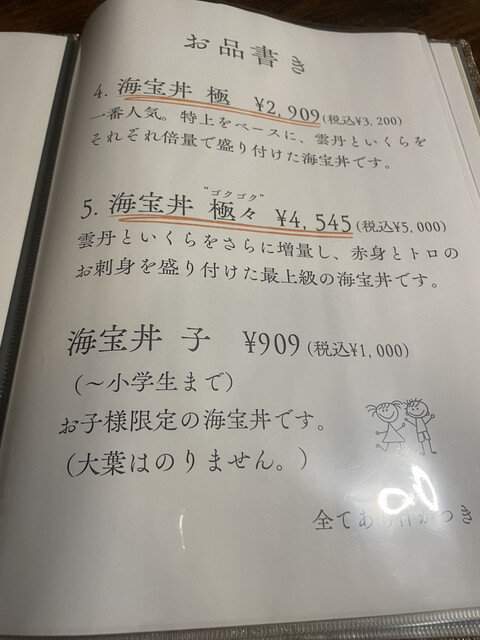 お品書き
4. 海宝丼 極 ¥2,909(税込¥3,200)
一番人気。特上をベースに、雲丹といくらを
それぞれ倍量で盛り付けた海宝丼です。
"ゴクゴク"
5. 海宝丼 極々 ¥4,545(税込¥5,000)
雲丹といくらをさらに増量し、赤身とトロの
お刺身を盛り付けた最上級の海宝丼です。
海宝丼 子 ¥909(税込¥1,000)
(～小学生まで)
お子様限定の海宝丼です。
(大葉はのりません。)
全てあら汁がつき